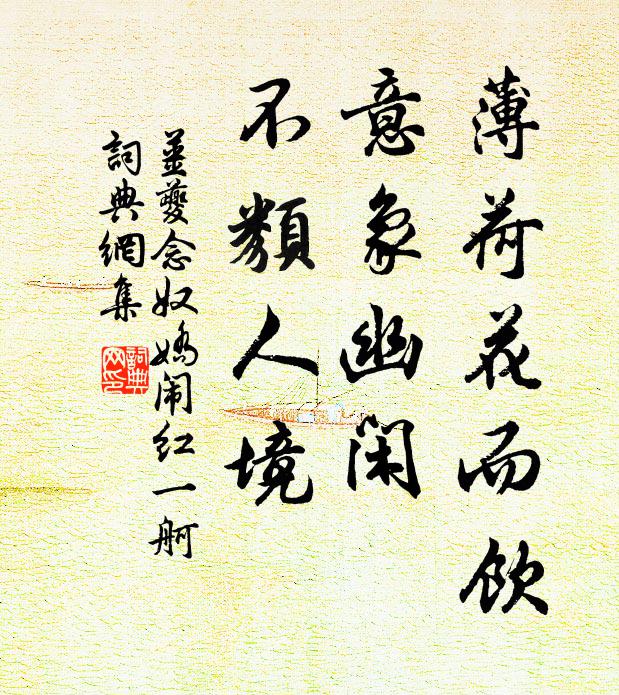 薄荷花而飲
意象幽閑
不類人境
姜夔念奴嬌闹红一舸
詞典網集
詞典网印